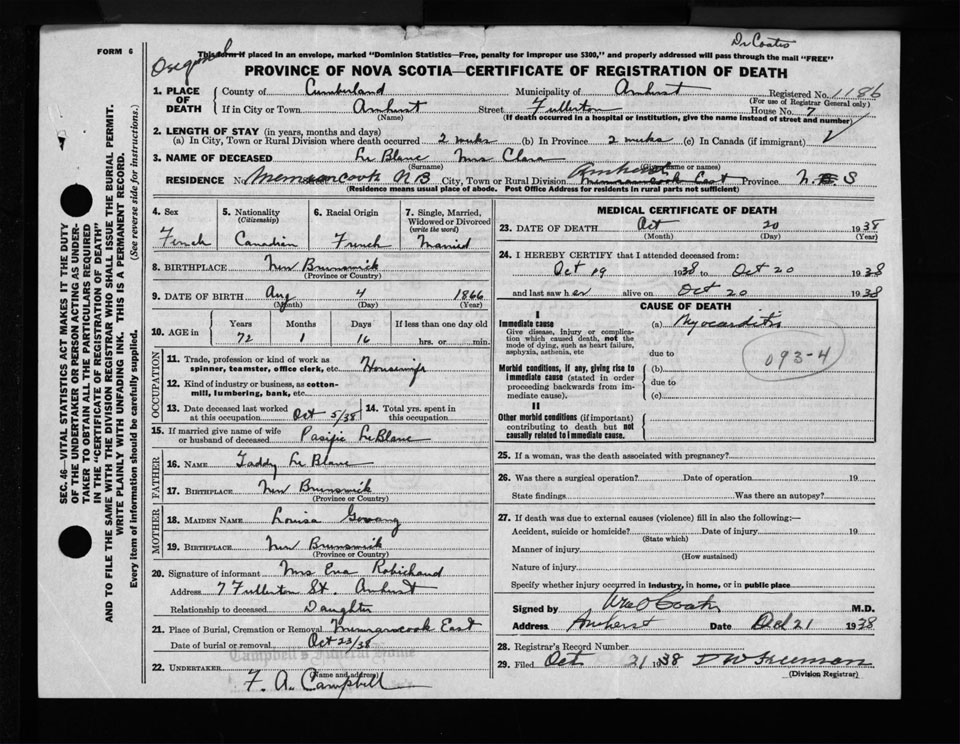 Dr Coates
FORM 6
This form if placed in an envelope, marked "Dominion Statistics—Free, penalty for improper use $300," and properly addressed will pass through the mail "FREE"
PROVINCE OF NOVA SCOTIA—CERTIFICATE OF REGISTRATION OF DEATH
1. PLACE OF DEATH
County of Cumberland Municipality of Amherst Registered No. 1186
(For use of Registrar General only)
If in City or Town Amherst Street Fullerton House No. 7
(Name) (If death occurred in a hospital or institution, give the name instead of street and number)
2. LENGTH OF STAY (in years, months and days)
(a) In City, Town or Rural Division where death occurred 2 weeks (b) In Province 2 weeks (c) In Canada (if immigrant)
3. NAME OF DECEASED Le Blanc Mrs Clara
(Surname) (Given name or names)
RESIDENCE No. Memramcook N B City, Town or Rural Division Amherst Memramcook East Province N. B S
(Residence means usual place of abode. Post Office Address for residents in rural parts not sufficient)
4. Sex 5. Nationality (Citizenship) 6. Racial Origin 7. Single, Married, Widowed or Divorced (write the word)
Canadian French Married
8. BIRTHPLACE New Brunswick
(Province or Country)
9. DATE OF BIRTH Aug 4 1866
(Month) (Day) (Year)
10. AGE in Years Months Days If less than one day old
72 1 16 hrs. or min.
OCCUPATION
11. Trade, profession or kind of work as spinner, teamster, office clerk, etc. Housewife
12. Kind of industry or business, as cotton-mill, lumbering, bank, etc.
13. Date deceased last worked at this occupation Oct 5/38 14. Total yrs. spent in this occupation
15. If married give name of wife or husband of deceased Pasific LeBlanc
FATHER
16. NAME Taddy Le Blanc
17. BIRTHPLACE New Brunswick
(Province or Country)
MOTHER
18. MAIDEN NAME Louisa
19. BIRTHPLACE New Brunswick
(Province or Country)
20. Signature of informant Mrs Eva Robichaud
Address 7 Fullerton St. Amherst
Relationship to deceased Daughter
21. Place of Burial, Cremation or Removal Memramcook East
Date of burial or removal Oct 23/38
Campbell's Funeral Home
22. UNDERTAKER F. A. Campbell
(Name and address)
MEDICAL CERTIFICATE OF DEATH
23. DATE OF DEATH Oct 20 1938
(Month) (Day) (Year)
24. I HEREBY CERTIFY that I attended deceased from:
Oct 19 1938 to Oct 20 1938
and last saw her alive on Oct 20 1938
CAUSE OF DEATH
I
Immediate cause (a) Myocarditis
Give disease, injury or complication which caused death, not the mode of dying, such as heart failure, asphyxia, asthenia, etc
due to
093-4
Morbid conditions, if any, giving rise to immediate cause (stated in order proceeding backwards from immediate cause).
(b)
due to
(c)
II
Other morbid conditions (if important) contributing to death but not causally related to immediate cause.
25. If a woman, was the death associated with pregnancy?
26. Was there a surgical operation? Date of operation 19
State findings Was there an autopsy?
27. If death was due to external causes (violence) fill in also the following:—
Accident, suicide or homicide? Date of injury 19
(State which)
Manner of injury
(How sustained)
Nature of injury
Specify whether injury occurred in industry, in home, or in public place
Signed by M.D.
Address Amherst Date Oct 21 1938
28. Registrar's Record Number
29. Filed Oct 21 1938 D W Freeman
(Division Registrar)
SEC. 46—VITAL STATISTICS ACT MAKES IT THE DUTY
OF THE UNDERTAKER OR PERSON ACTING AS UNDER-
TAKER TO OBTAIN ALL THE PARTICULARS REQUIRED
IN THE "CERTIFICATE OF REGISTRATION OF DEATH"
AND TO FILE THE SAME WITH THE DIVISION REGISTRAR WHO SHALL ISSUE THE BURIAL PERMIT.
WRITE PLAINLY WITH UNFADING INK. THIS IS A PERMANENT RECORD.
Every item of information should be carefully supplied. (See reverse side for instructions.)